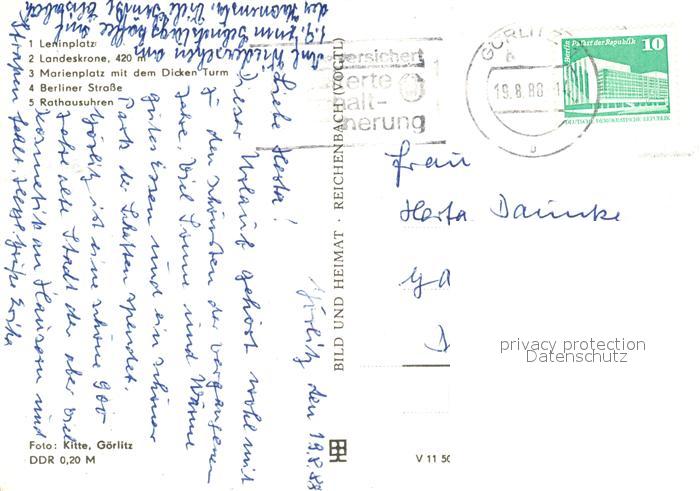 1 Leninplatz
2 Landeskrone, 420 m
3 Marienplatz mit dem Dicken Turm
4 Berliner Straße
5 Rathausuhren
Görlitz, den 19.8.88
Liebe Herta!
Dieser Urlaub gehört wohl mit
zu den schönsten der vergangenen
Jahre. Viel Sonne und Wärme
gutes Essen und ein schöner
Park der Schatten spendet.
Görlitz ist eine schöne 900
Jahre alte Stadt der aber viel
Kosmetik an Häusern und
Straßen fehlt. Herzl. Grüße Erika
Auf Wiedersehen am
1.9. zum
Foto: Kitte, Görlitz
DDR 0,20 M
BILD UND HEIMAT · REICHENBACH (VOGTL)
V 11 50
versichert
erte
alt-
herung
GÖRLITZ
19.8.88
Berlin Palast der Republik 10
DEUTSCHE DEMOKRATISCHE REPUBLIK
Frau
Herta Daunke
privacy protection
Datenschutz